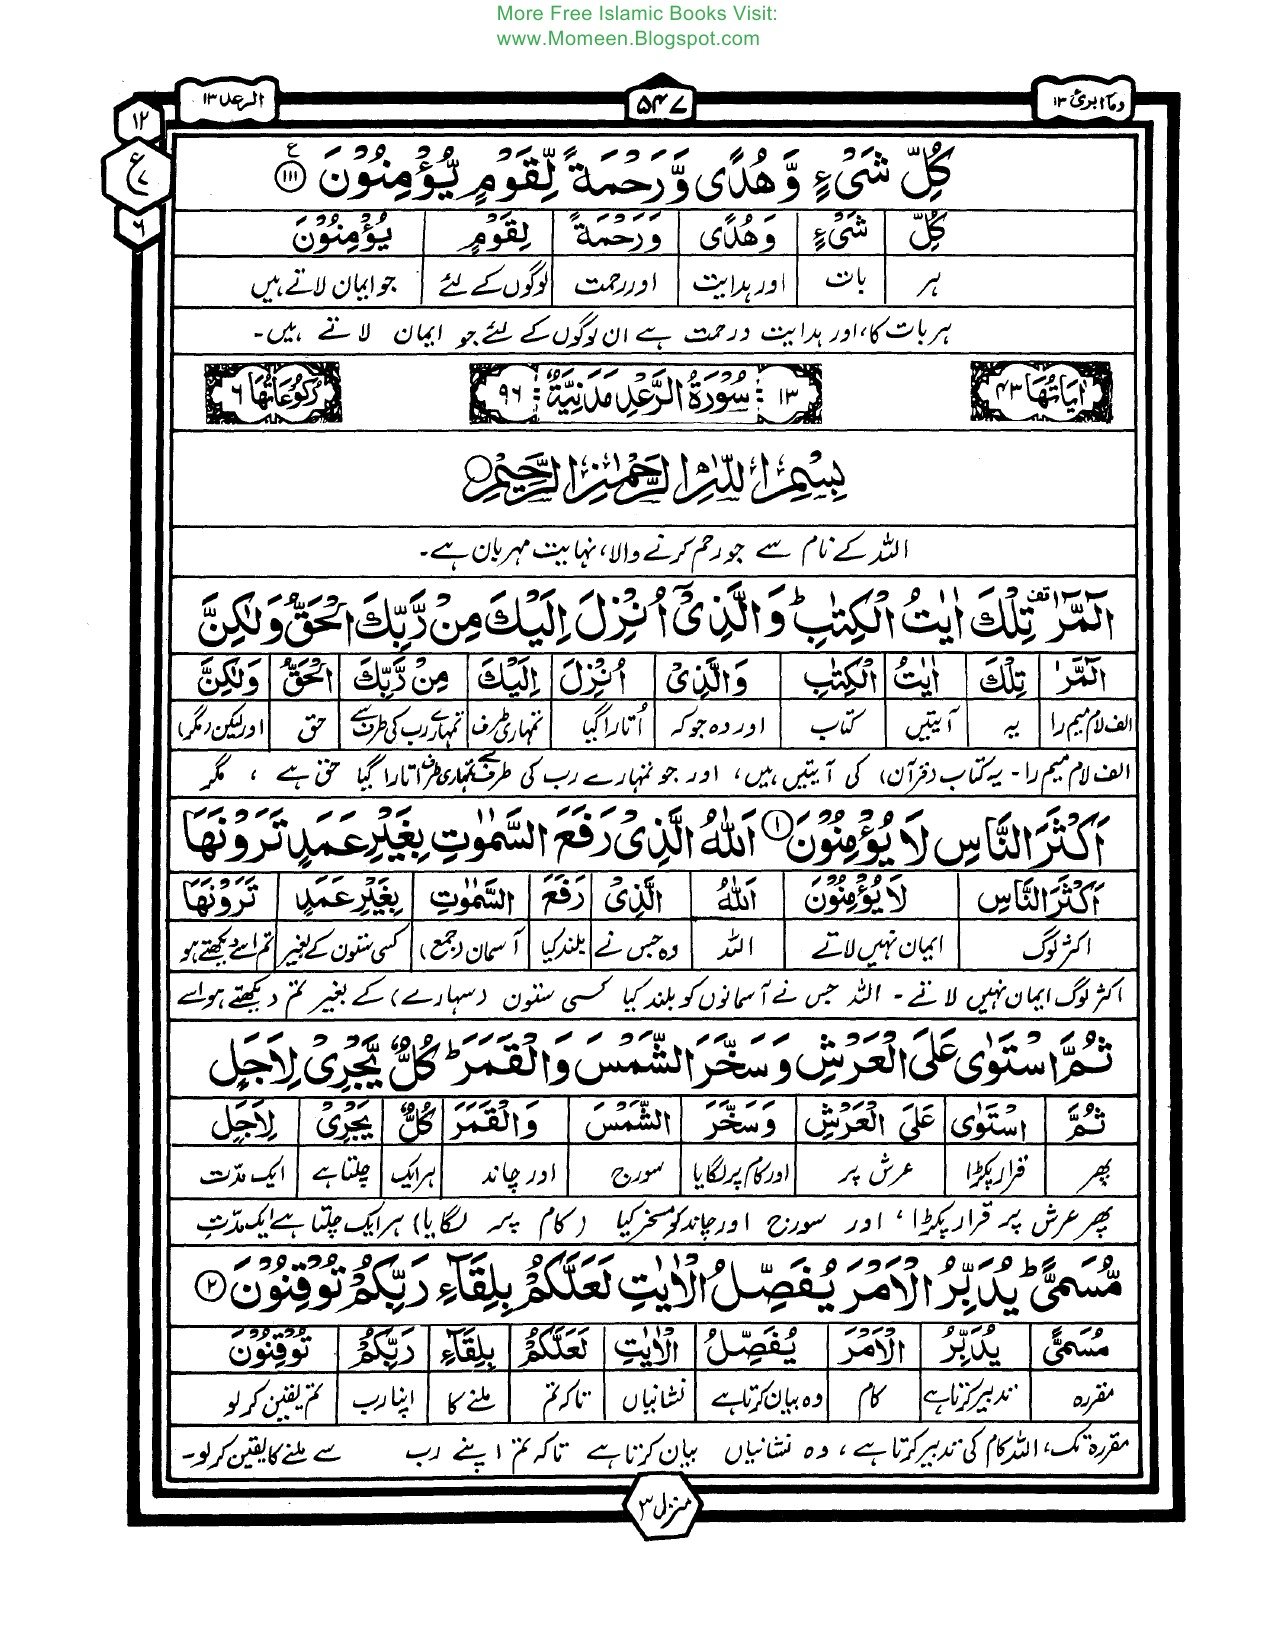 More Free Islamic Books Visit:
www.Momeen.Blogspot.com
الرعد ۱۳ ۵۴۷ وما ابرئ ۱۳
۱۲
ع ۷
۶
كُلِّ شَیْءٍ وَّ هُدًی وَّ رَحْمَةً لِّقَوْمٍ یُّؤْمِنُوْنَ ﴿۱۱۱﴾ ع
كُلِّ شَیْءٍ وَهُدًی وَرَحْمَةً لِقَوْمٍ یُؤْمِنُوْنَ
ہر بات اور ہدایت اور رحمت لوگوں کے لئے جو ایمان لاتے ہیں
ہر بات کا، اور ہدایت و رحمت ہے ان لوگوں کے لئے جو ایمان لاتے ہیں۔
اٰیَاتُهَا ۴۳ ۱۳ سُوْرَةُ الرَّعْدِ مَدَنِیَّةٌ ۹۶ رُكُوْعَاتُهَا ۶
بِسْمِ اللّٰهِ الرَّحْمٰنِ الرَّحِیْمِ
اللہ کے نام سے جو رحم کرنے والا، نہایت مہربان ہے۔
الٓمّٓرٰ تِلْكَ اٰیٰتُ الْكِتٰبِ ؕ وَ الَّذِیْۤ اُنْزِلَ اِلَیْكَ مِنْ رَّبِّكَ الْحَقُّ وَلٰكِنَّ
الٓمّٓرٰ تِلْكَ اٰیٰتُ الْكِتٰبِ وَالَّذِیْ اُنْزِلَ اِلَیْكَ مِنْ رَّبِّكَ الْحَقُّ وَلٰكِنَّ
الف لام میم را یہ آیتیں کتاب اور وہ جو کہ اُتارا گیا تمہاری طرف تمہارے رب کی طرف سے حق اور لیکن (مگر)
الف لام میم را - یہ کتاب (قرآن) کی آیتیں ہیں، اور جو تمہارے رب کی طرف سے تمہاری طرف اتارا گیا حق ہے ، مگر
اَكْثَرَ النَّاسِ لَا یُؤْمِنُوْنَ ﴿۱﴾ اَللّٰهُ الَّذِیْ رَفَعَ السَّمٰوٰتِ بِغَیْرِ عَمَدٍ تَرَوْنَهَا
اَكْثَرَ النَّاسِ لَا یُؤْمِنُوْنَ اَللّٰهُ الَّذِیْ رَفَعَ السَّمٰوٰتِ بِغَیْرِ عَمَدٍ تَرَوْنَهَا
اکثر لوگ ایمان نہیں لاتے اللہ وہ جس نے بلند کیا آسمان (جمع) کسی ستون کے بغیر تم اسے دیکھتے ہو
اکثر لوگ ایمان نہیں لاتے - اللہ جس نے آسمانوں کو بلند کیا کسی ستون (سہارے) کے بغیر تم دیکھتے ہو اسے
ثُمَّ اسْتَوٰی عَلَی الْعَرْشِ وَ سَخَّرَ الشَّمْسَ وَ الْقَمَرَ ؕ كُلٌّ یَّجْرِیْ لِاَجَلٍ
ثُمَّ اسْتَوٰی عَلَی الْعَرْشِ وَسَخَّرَ الشَّمْسَ وَالْقَمَرَ كُلٌّ یَجْرِیْ لِاَجَلٍ
پھر قرار پکڑا عرش پر اور کام پر لگایا سورج اور چاند ہر ایک چلتا ہے ایک مدت
پھر عرش پر قرار پکڑا، اور سورج اور چاند کو مسخر کیا (کام پر لگایا) ہر ایک چلتا ہے ایک مدتِ
مُّسَمًّی ؕ یُدَبِّرُ الْاَمْرَ یُفَصِّلُ الْاٰیٰتِ لَعَلَّكُمْ بِلِقَآءِ رَبِّكُمْ تُوْقِنُوْنَ ﴿۲﴾
مُسَمًّی یُدَبِّرُ الْاَمْرَ یُفَصِّلُ الْاٰیٰتِ لَعَلَّكُمْ بِلِقَآءِ رَبِّكُمْ تُوْقِنُوْنَ
مقررہ تدبیر کرتا ہے کام وہ بیان کرتا ہے نشانیاں تاکہ تم ملنے کا اپنا رب تم یقین کر لو
مقررہ تک، اللہ کام کی تدبیر کرتا ہے، وہ نشانیاں بیان کرتا ہے تاکہ تم اپنے رب سے ملنے کا یقین کر لو۔
منزل ۳